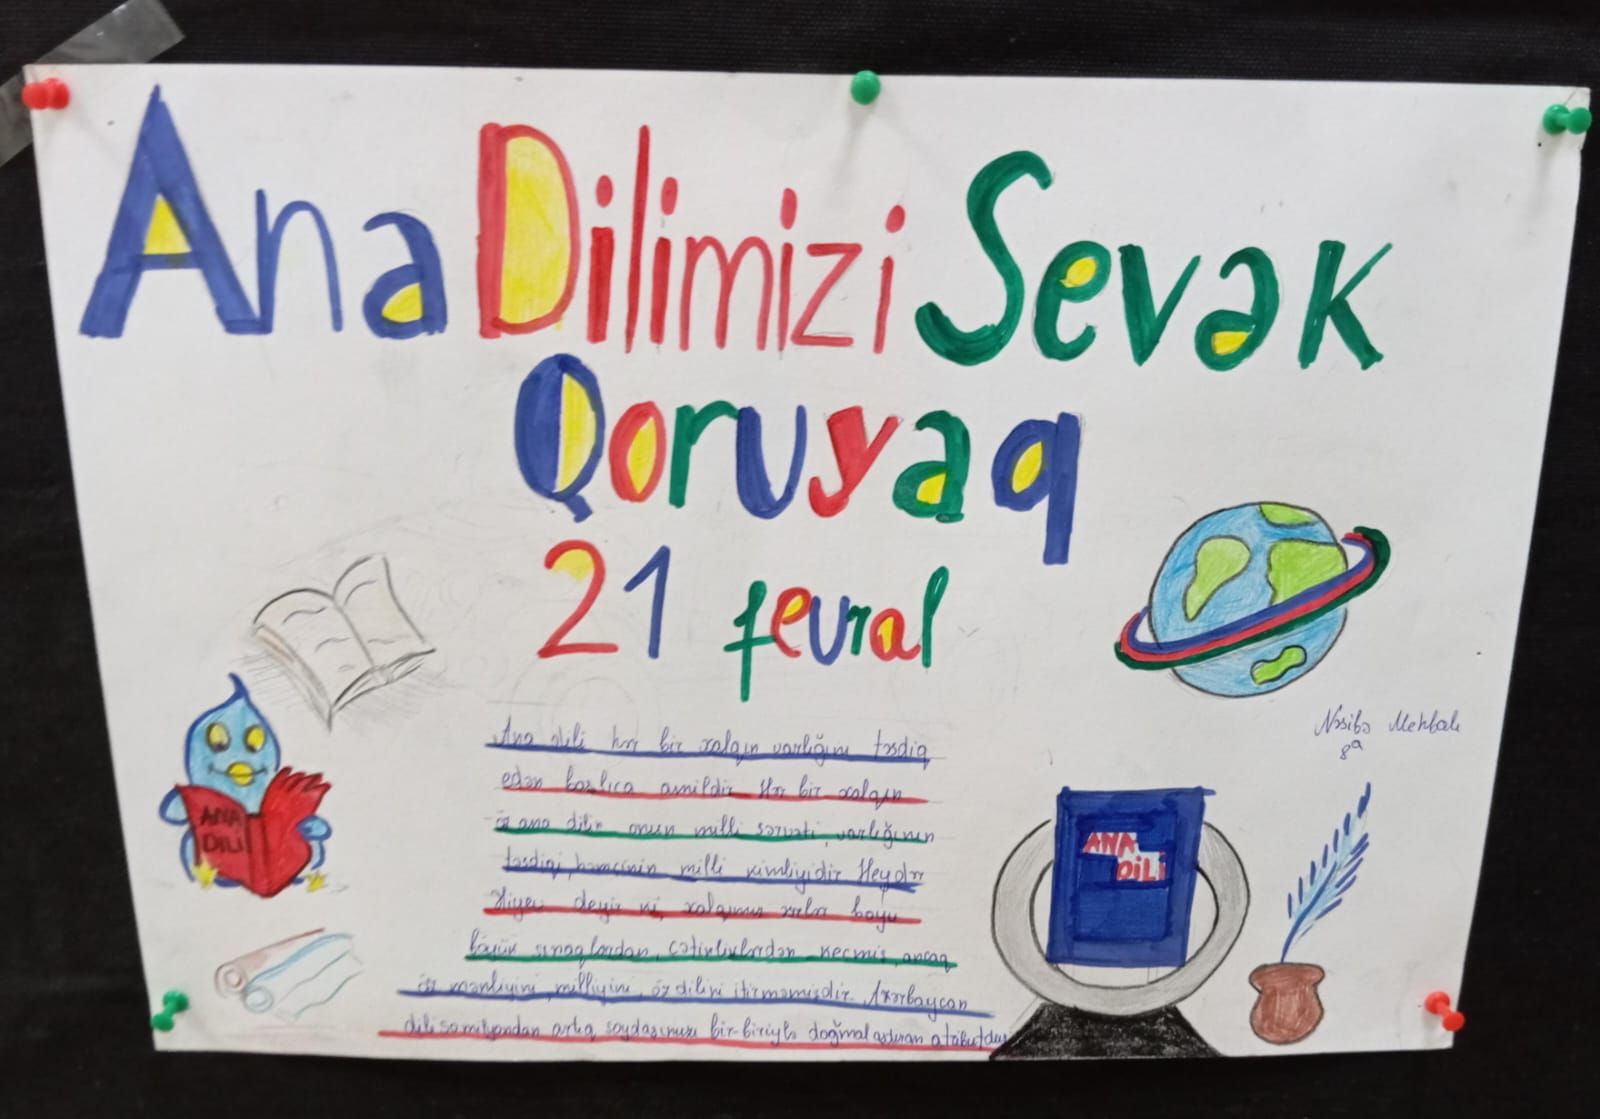 Ana Dilimizi Sevək
Qoruyaq
21 fevral
Ana dili hər bir xalqın varlığını təsdiq
edən başlıca amildir. Hər bir xalqın
öz ana dilin onun milli sərvəti, varlığının
təsdiqi, həmçinin milli kimliyidir. Heydər
Əliyev deyir ki, xalqımız əsrlər boyu
böyük sınaqlardan, çətinliklərdən keçmiş, ancaq
öz mənliyini, milliyini, öz dilini itirməmişdir. Azərbaycan
dili 50 milyondan artıq soydaşımızı bir-biriylə doğmalaşdıran
Nəsibə
8a
ANA
DILI
ANA
DİLİ